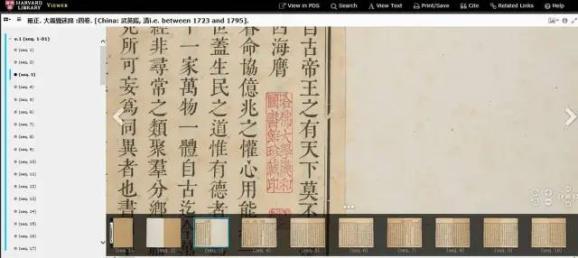 HARVARD LIBRARY VIEWER
View in PDF
Search
View Text
Print/Save
Cite
Related Links
Help
雍正. 大義覺迷錄 :四卷. [China: 武英殿, 清i.e. between 1723 and 1795].
v.1 (seq. 1-81)
(seq. 1)
(seq. 2)
(seq. 3)
(seq. 4)
(seq. 5)
(seq. 6)
(seq. 7)
(seq. 8)
(seq. 9)
(seq. 10)
(seq. 11)
(seq. 12)
(seq. 13)
(seq. 14)
(seq. 15)
(seq. 16)
(seq. 17)
自古帝王之有天下莫不
四海膺
哈佛大學漢和
圖書館珍藏印
眷命協億兆之懽心用能
世蓋生民之道惟有德者
下一家萬物一體自古迄
經非尋常之類聚羣分鄉
見所可妄爲同異者也書